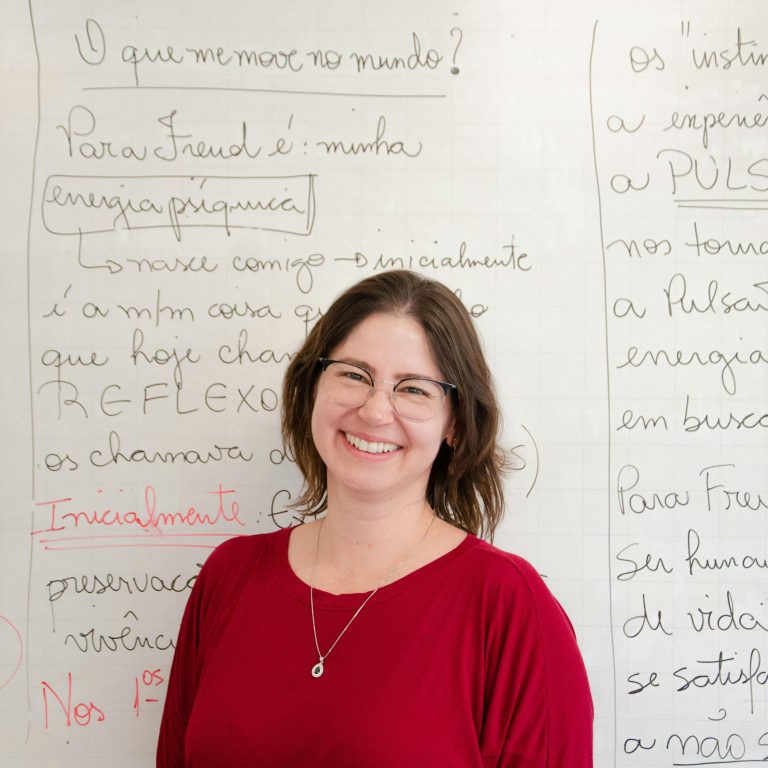 O que me move no mundo?
Para Freud é: minha
energia psíquica
↳ nasce comigo → inicialmente
é a m/m coisa
que hoje cham
REFLEXO
os chamava d
Inicialmente:
preservaçã
vivênci
Nos 1os
os "instin
a experiê
a PULS
nos torna
a Pulsã
energia
em busca
Para Freu
Ser human
de vida
se satisfa
a não s